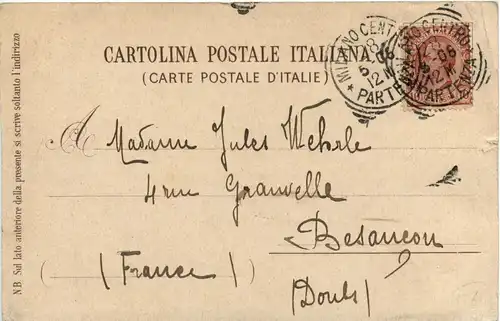 CARTOLINA POSTALE ITALIANA
(CARTE POSTALE D'ITALIE)
MILANO CENTRO
5
12 M
* PARTENZA
CENTRO
06
12 M
PARTENZA
A Madame Jules Wehrle
4 rue Granvelle
Besançon
(France)
(Doubs)
N.B. Sul lato anteriore della presente si scrive soltanto l'indirizzo